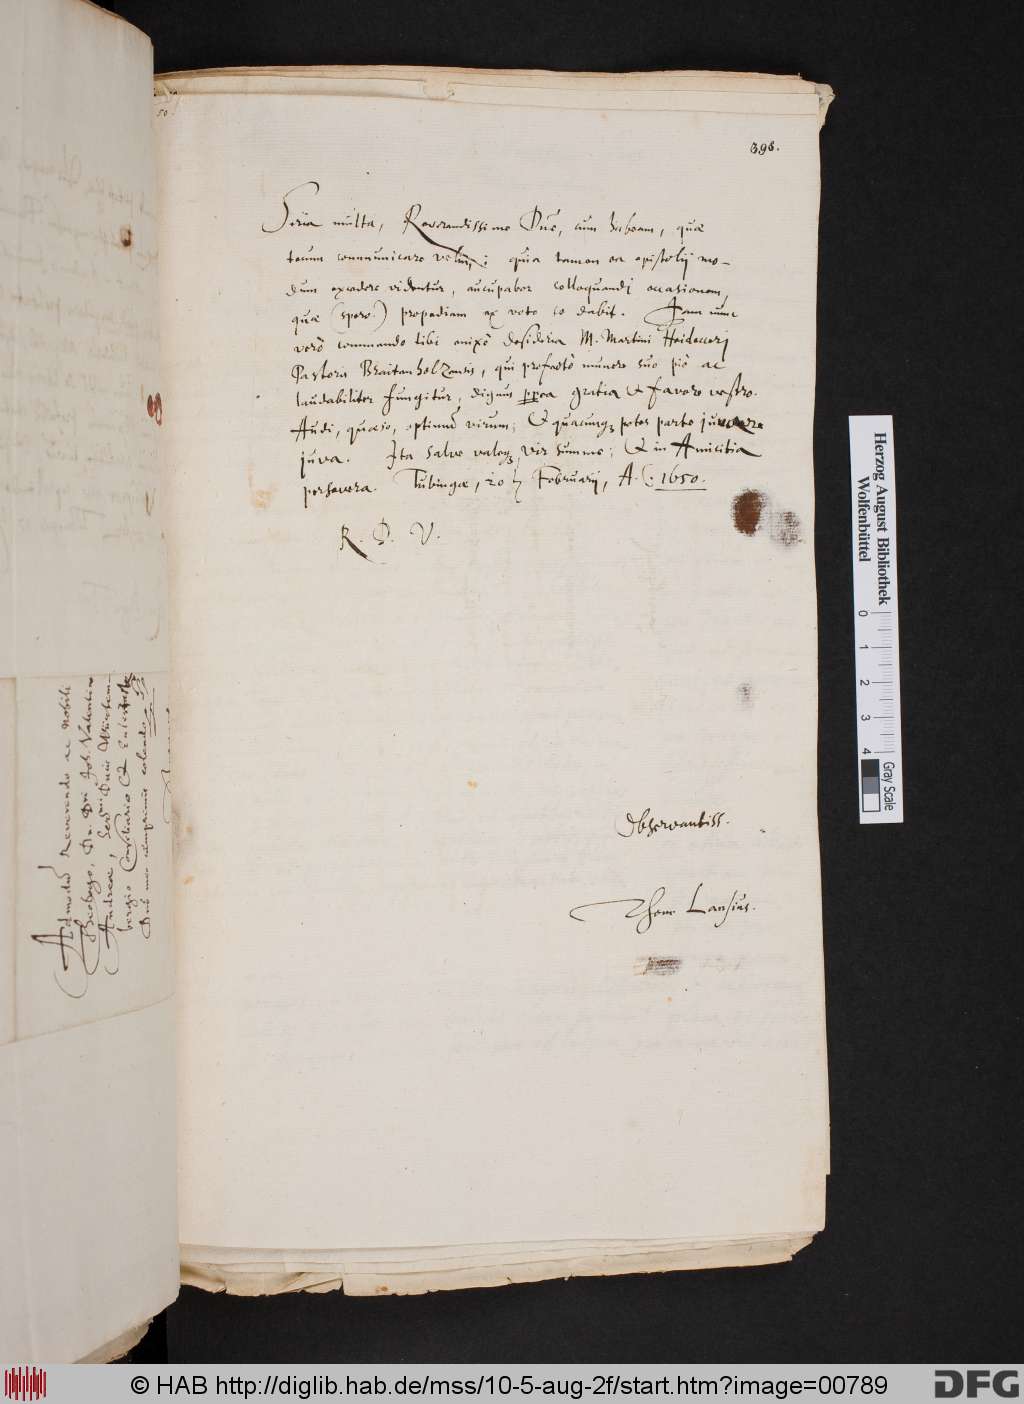 50.
398.
Seria multa, Reverendissime Dn̄e, cum habeam, quæ
tecum communicare velim; quia tamen ea epistolij mo-
dum excedere videntur, aucupabor colloquendi occasionem,
quæ (spero.) propediem ex voto se dabit. Jam nunc
verò commendo tibi enixè desideria M. Martini Heideccerj
Pastoris Braitenholzensis, qui profectò munere suo piè ac
laudabiliter fungitur, dignus gratia & favore vestro.
Audi, quæso, optimū virum; & quacunq; potes parte juvare
juva. Ita salve valeq; vir summe; & in Amicitia
persevera. Tubingæ, 20 Februarij, A. C. 1650.
R. D. V.
Observantiss.
Thom Lansius.
Admodū Reverendo ac Nobili
Theologo, Dn. Dn̄i Joh. Valentino
Andreæ, Ser. Ducis Würtem-
bergio Consiliario &
Dn̄o meo cumprimis colendo
Herzog August Bibliothek
Wolfenbüttel
0 1 2 3 4
Gray Scale
© HAB http://diglib.hab.de/mss/10-5-aug-2f/start.htm?image=00789
DFG